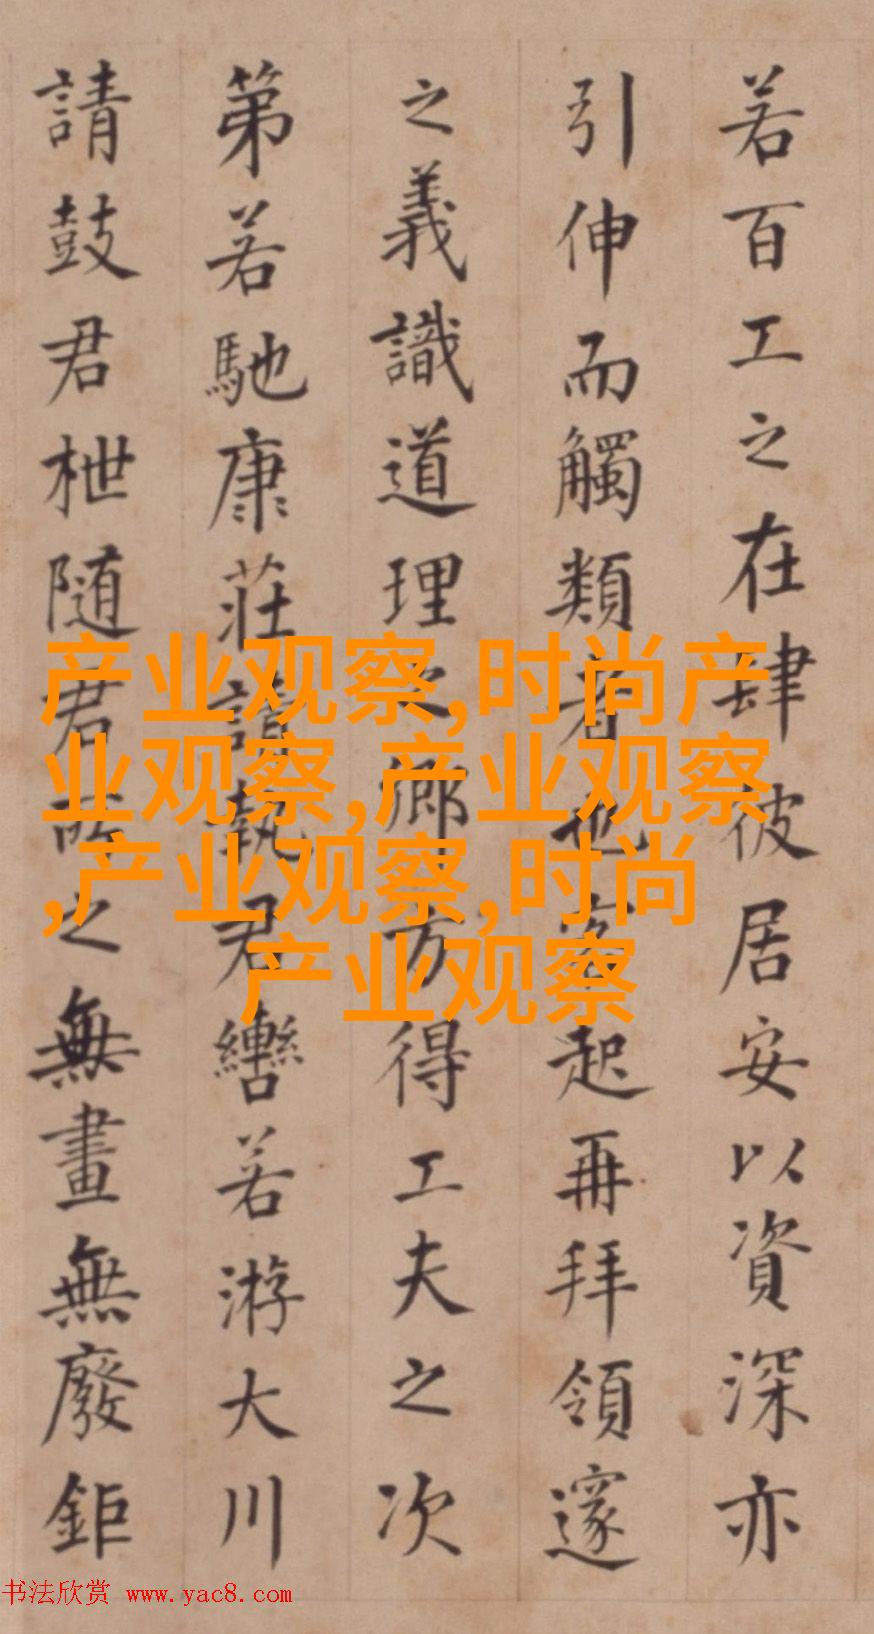 若百工之在肆彼居安以資深亦
引伸而觸類者也客起再拜領邃
之義識道理之鄉方得工夫之次
第若馳康莊請執君轡若游大川
請鼓君枻随君所之無畫無廢鉅
产业观察,时尚产
业观察,产业观察
,产业观察,时尚
产业观察
书法欣赏 www.yac8.com